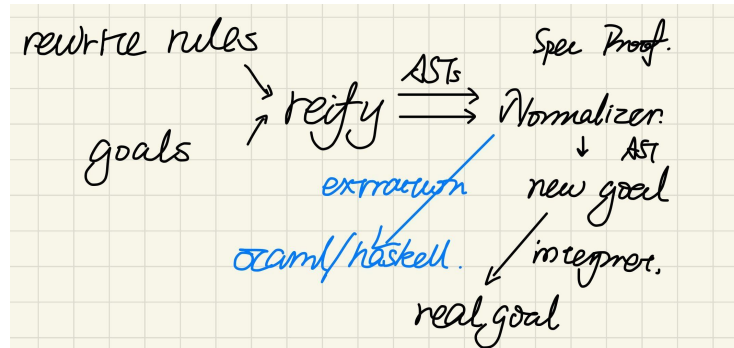 rewrite rules
Spec Proof.
ASTs
reify
Normalizer.
goals
AST
extraction
new goal
ocaml/haskell.
interpret.
real goal